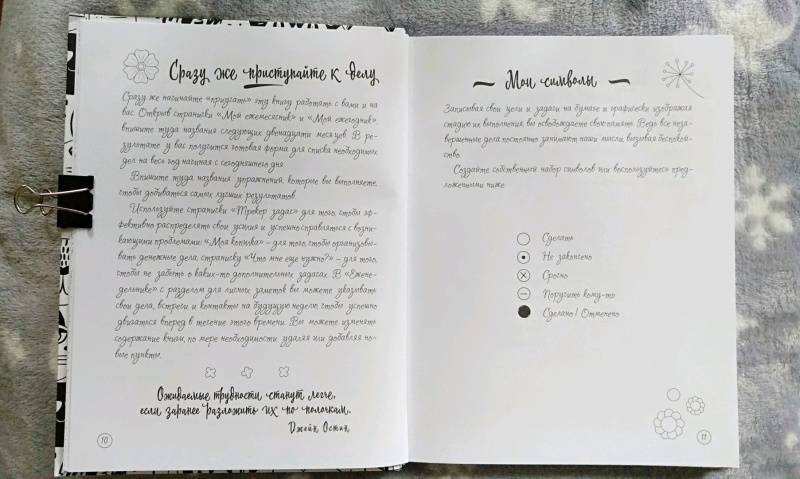 Сразу же приступайте к делу
Сразу же начинайте «придгать» эту книгу работать с вами и на
вас. Открыв странички «Мой ежемесячник» и «Мой ежегодник»
впишите туда названия следующих двенадцати месяцев. В ре-
зультате у вас получится готовая форма для списка необходимых
дел на весь год начиная с сегодняшнего дня.
Впишите туда названия упражнений, которые вы выполняете,
чтобы добиваться самых лучших результатов.
Используйте странички «Трекер задач» для того, чтобы эф-
фективно распределять свои усилия и успешно справляться с возни-
кающими проблемами: «Моя копилка» – для того, чтобы организовы-
вать денежные дела, страничку «Что мне еще нужно?» – для того,
чтобы не забыть о каких-то дополнительных задачах. В «Ежене-
дельнике» с разделом для личных заметок вы можете указывать
свои дела, встречи и контакты на будущую неделю, чтобы успешно
двигаться вперед в течение этого времени. Вы можете изменять
содержание книги, по мере необходимости удаляя или добавляя но-
вые пункты.
Ожидаемые трудности станут легче,
если заранее разложить их по полочкам.
Джейн Остин
10
Мои символы
Записывая свои цели и задачи на бумаге и графически изображая
стадию их выполнения, вы освобождаете свою память. Ведь все неза-
вершенные дела постоянно занимают наши мысли, вызывая беспокой-
ство.
Создайте собственный набор символов или воспользуйтесь пред-
ложенными ниже:
Сделать
Не закончено
Срочно
Поручить кому-то
Сделано! Отменено
11